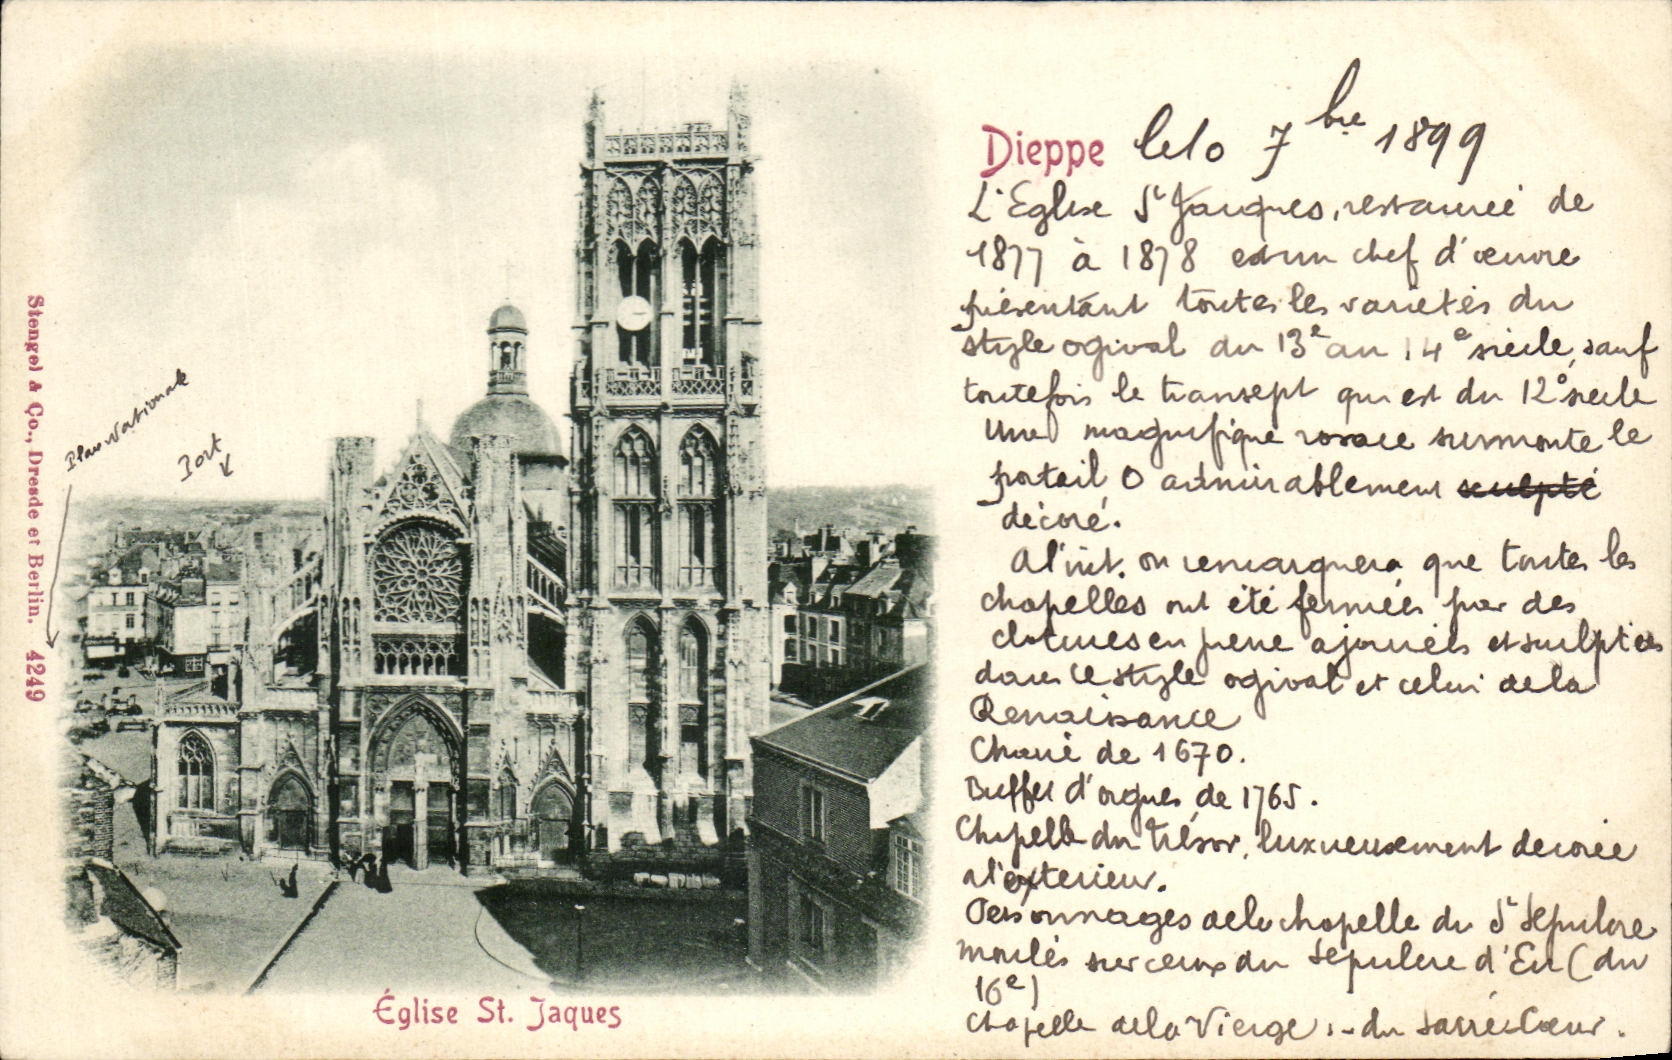 Dieppe le 10 7bre 1899
L'Eglise St Jacques, restaurée de
1877 à 1878 est un chef d'œuvre
présentant toutes les variétés du
style ogival du 13e au 14e siècle, sauf
toutefois le transept qui est du 12e siècle
Une magnifique rosace surmonte le
portail O admirablement sculpté
décoré.
A l'int. on remarquera que toutes les
chapelles ont été fermées par des
clotures en pierre ajourées et sculptées
dans le style ogival et celui de la
Renaissance
Chaire de 1670.
Buffet d'orgues de 1765.
Chapelle du Trésor, luxueusement décorée
a l'exterieur.
Personnages de la chapelle du St Sépulcre
moulés sur ceux du Sépulcre d'Eu (du
16e)
Chapelle de la Vierge, - du Sacré Cœur.
Place Nationale
Port
Stengel & Co., Dresde et Berlin. 4249
Église St. Jaques